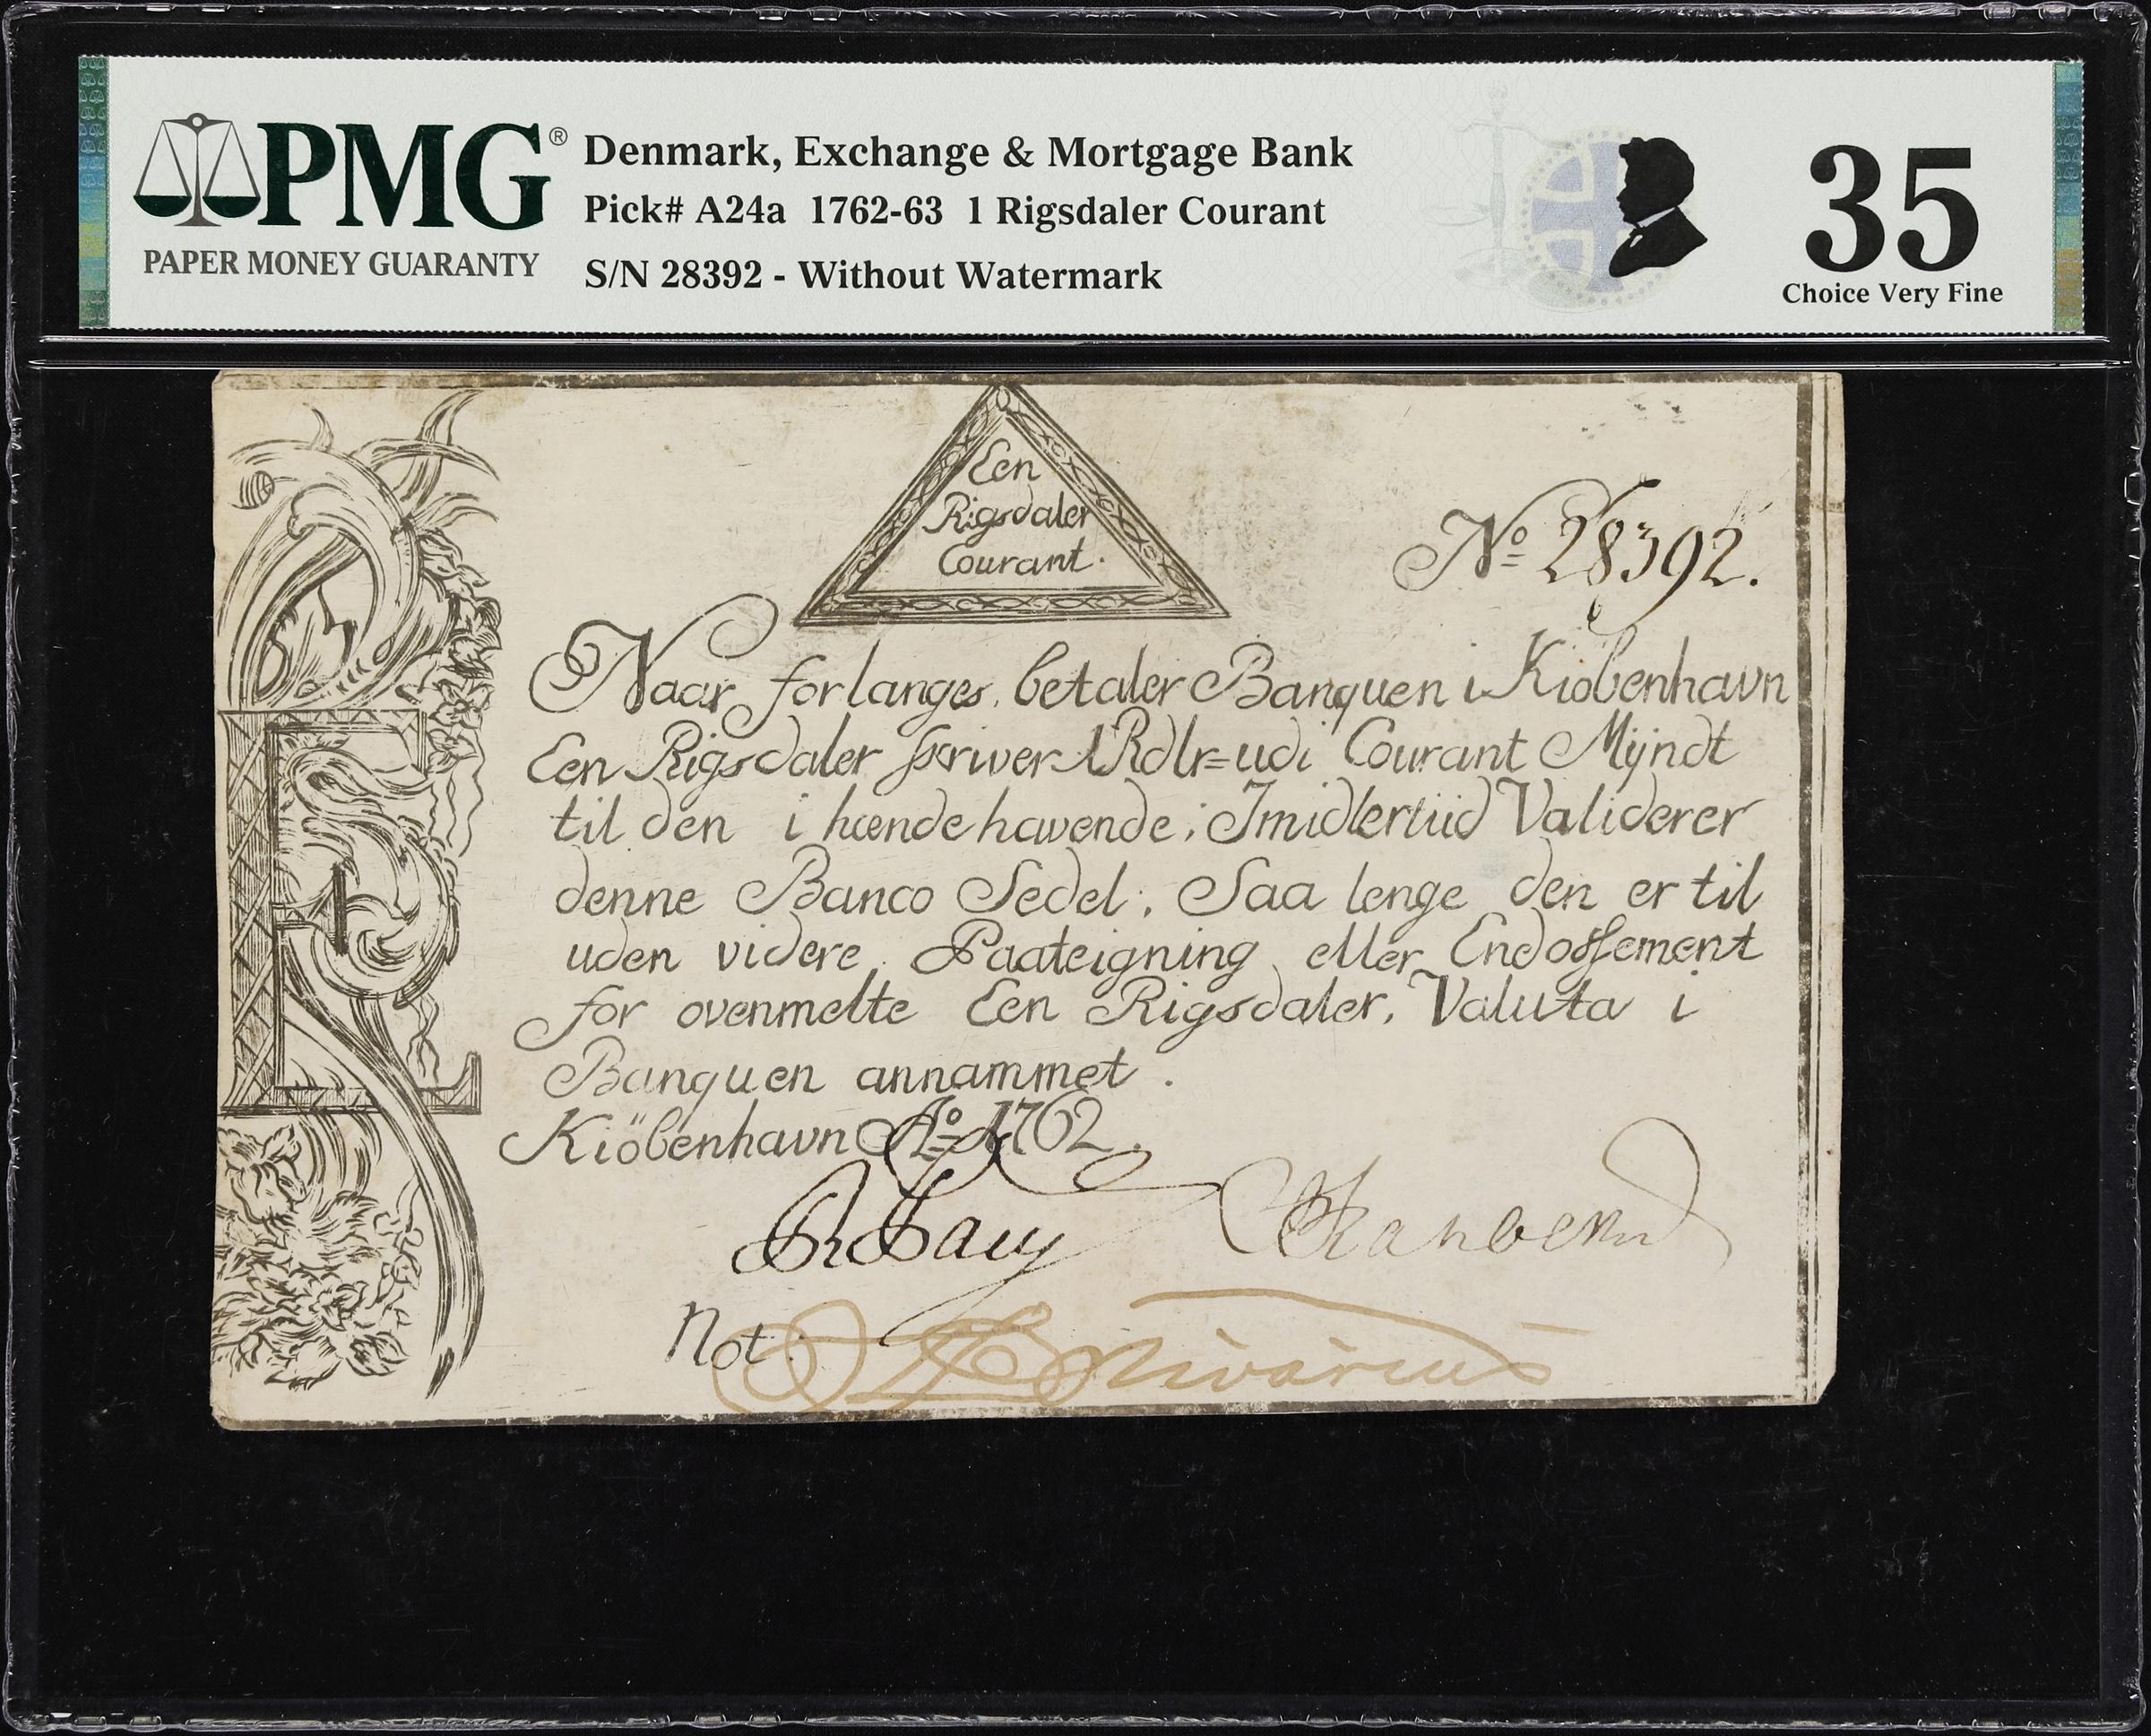 PMG®
PAPER MONEY GUARANTY
Denmark, Exchange & Mortgage Bank
Pick# A24a 1762-63 1 Rigsdaler Courant
S/N 28392 - Without Watermark
35
Choice Very Fine
Een
Rigsdaler
Courant.
No 28392.
Naar forlanges, betaler Banquen i Kiöbenhavn
Een Rigsdaler skriver 1 Rdlr= udi Courant Mÿndt
til den i hændehavende; Imidlertiid Validerer
denne Banco Sedel; Saa lenge den er til
uden videre Paateigning eller Endossement
for ovenmelte Een Rigsdaler, Valuta i
Banquen annammet.
Kiöbenhavn Ao 1762.
Not:
1